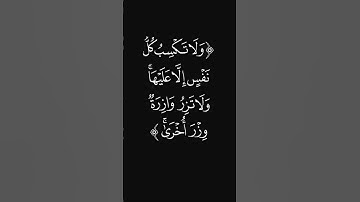 ﴿ وَلَا تَكْسِبُ كُلُّ
نَفْسٍ إِلَّا عَلَيْهَا ۚ
وَلَا تَزِرُ وَازِرَةٌ
وِزْرَ أُخْرَىٰ ۚ ﴾